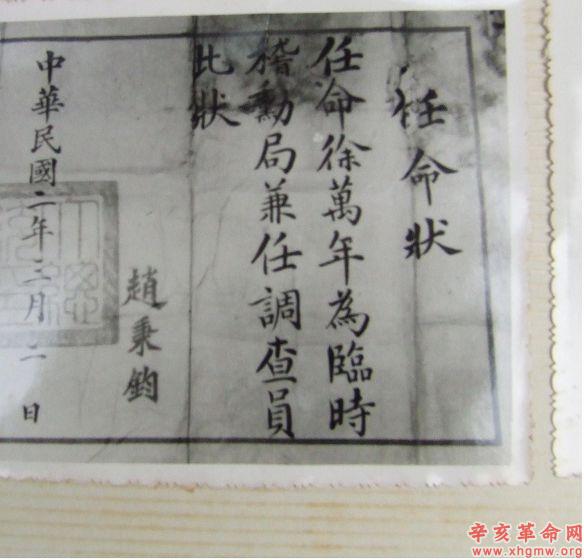 任命狀
任命徐萬年為臨時
稽勳局兼任調查員
此狀
趙秉鈞
中華民國二年三月二日
辛亥革命网
www.xhgmw.org